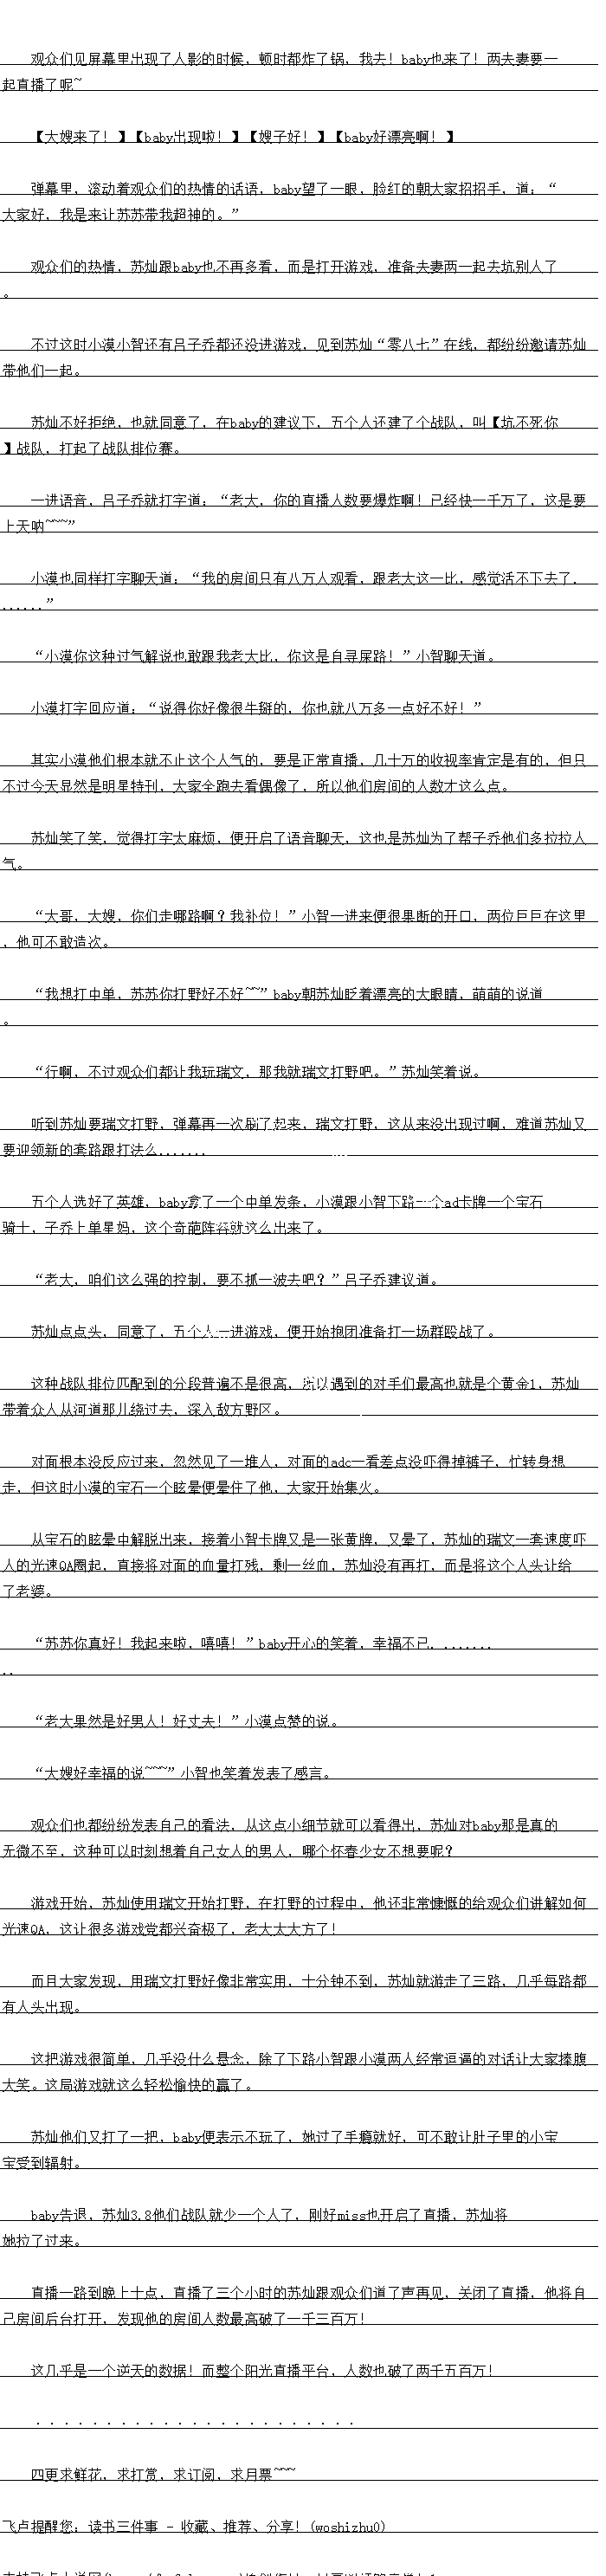 观众们见屏幕里出现了人影的时候，顿时都炸了锅，我去！baby也来了！两夫妻要一
起直播了呢~
【大嫂来了！】【baby出现啦！】【嫂子好！】【baby好漂亮啊！】
弹幕里，滚动着观众们的热情的话语，baby望了一眼，脸红的朝大家招招手，道：“
大家好，我是来让苏苏带我超神的。”
观众们的热情，苏灿跟baby也不再多看，而是打开游戏，准备夫妻两一起去坑别人了
。
不过这时小漠小智还有吕子乔都还没进游戏，见到苏灿“零八七”在线，都纷纷邀请苏灿
带他们一起。
苏灿不好拒绝，也就同意了，在baby的建议下，五个人还建了个战队，叫【坑不死你
】战队，打起了战队排位赛。
一进语音，吕子乔就打字道：“老大，你的直播人数要爆炸啊！已经快一千万了，这是要
上天呐~~~”
小漠也同样打字聊天道：“我的房间只有八万人观看，跟老大这一比，感觉活不下去了.
......”
“小漠你这种过气解说也敢跟我老大比，你这是自寻屎路！”小智聊天道。
小漠打字回应道：“说得你好像很牛掰的，你也就八万多一点好不好！”
其实小漠他们根本就不止这个人气的，要是正常直播，几十万的收视率肯定是有的，但只
不过今天显然是明星特刊，大家全跑去看偶像了，所以他们房间的人数才这么点。
苏灿笑了笑，觉得打字太麻烦，便开启了语音聊天，这也是苏灿为了帮子乔他们多拉拉人
气。
“大哥，大嫂，你们走哪路啊？我补位！”小智一进来便很果断的开口，两位巨巨在这里
，他可不敢造次。
“我想打中单，苏苏你打野好不好~~”baby朝苏灿眨着漂亮的大眼睛，萌萌的说道
。
“行啊，不过观众们都让我玩瑞文，那我就瑞文打野吧。”苏灿笑着说。
听到苏灿要瑞文打野，弹幕再一次刷了起来，瑞文打野，这从来没出现过啊，难道苏灿又
要迎领新的套路跟打法么.......
五个人选好了英雄，baby拿了一个中单发条，小漠跟小智下路一个ad卡牌一个宝石
骑士，子乔上单星妈，这个奇葩阵容就这么出来了。
“老大，咱们这么强的控制，要不抓一波去吧？”吕子乔建议道。
苏灿点点头，同意了，五个人一进游戏，便开始抱团准备打一场群殴战了。
这种战队排位匹配到的分段普遍不是很高，所以遇到的对手们最高也就是个黄金1，苏灿
带着众人从河道那儿绕过去，深入敌方野区。
对面根本没反应过来，忽然见了一堆人，对面的adc一看差点没吓得掉裤子，忙转身想
走，但这时小漠的宝石一个眩晕便晕住了他，大家开始集火。
从宝石的眩晕中解脱出来，接着小智卡牌又是一张黄牌，又晕了，苏灿的瑞文一套速度吓
人的光速QA圈起，直接将对面的血量打残，剩一丝血，苏灿没有再打，而是将这个人头让给
了老婆。
“苏苏你真好！我起来啦，嘻嘻！”baby开心的笑着，幸福不已........
..
“老大果然是好男人！好丈夫！”小漠点赞的说。
“大嫂好幸福的说~~~”小智也笑着发表了感言。
观众们也都纷纷发表自己的看法，从这点小细节就可以看得出，苏灿对baby那是真的
无微不至，这种可以时刻想着自己女人的男人，哪个怀春少女不想要呢？
游戏开始，苏灿使用瑞文开始打野，在打野的过程中，他还非常慷慨的给观众们讲解如何
光速QA，这让很多游戏党都兴奋极了，老大太大方了！
而且大家发现，用瑞文打野好像非常实用，十分钟不到，苏灿就游走了三路，几乎每路都
有人头出现。
这把游戏很简单，几乎没什么悬念，除了下路小智跟小漠两人经常逗逼的对话让大家捧腹
大笑。这局游戏就这么轻松愉快的赢了。
苏灿他们又打了一把，baby便表示不玩了，她过了手瘾就好，可不敢让肚子里的小宝
宝受到辐射。
baby告退，苏灿3.8他们战队就少一个人了，刚好miss也开启了直播，苏灿将
她拉了过来。
直播一路到晚上十点，直播了三个小时的苏灿跟观众们道了声再见，关闭了直播，他将自
己房间后台打开，发现他的房间人数最高破了一千三百万！
这几乎是一个逆天的数据！而整个阳光直播平台，人数也破了两千五百万！
．．．．．．．．．．．．．．．．．．．．．．．
四更求鲜花，求打赏，求订阅，求月票~~~
飞卢提醒您：读书三件事 - 收藏、推荐、分享！(woshizhu0)